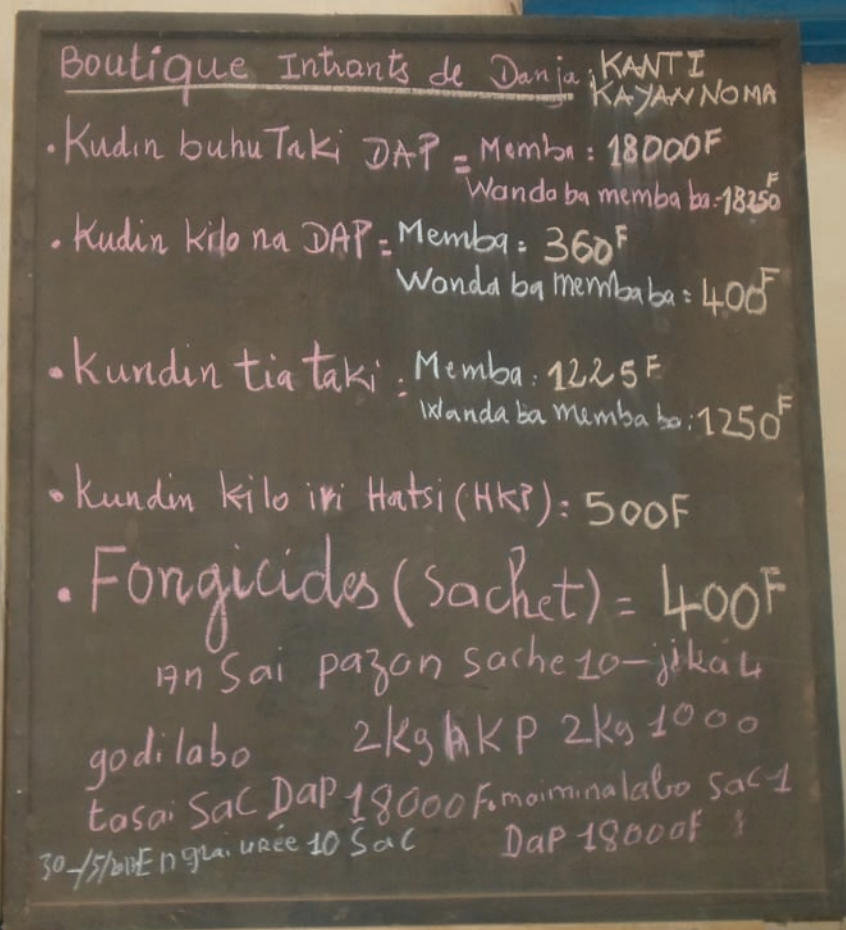 Boutique Intrants de Danja: KANTI
KAYAN NOMA
• Kudin buhu Taki DAP = Memba: 18000F
Wanda ba memba ba: 18250F
• Kudin kilo na DAP = Memba: 360F
Wonda ba memba ba: 400F
• Kundin tia taki: Memba: 1225F
Wanda ba memba ba: 1250F
• Kundin kilo iri Hatsi (HKP): 500F
• Fongicides (Sachet) = 400F
an Sai pazon sache 10-jika 4
godi labo 2kg hKP 2kg 1000
tasai Sac DaP 18000F. maimina labo Sac 1
DaP 18000F
Engrai urée 10 Sac